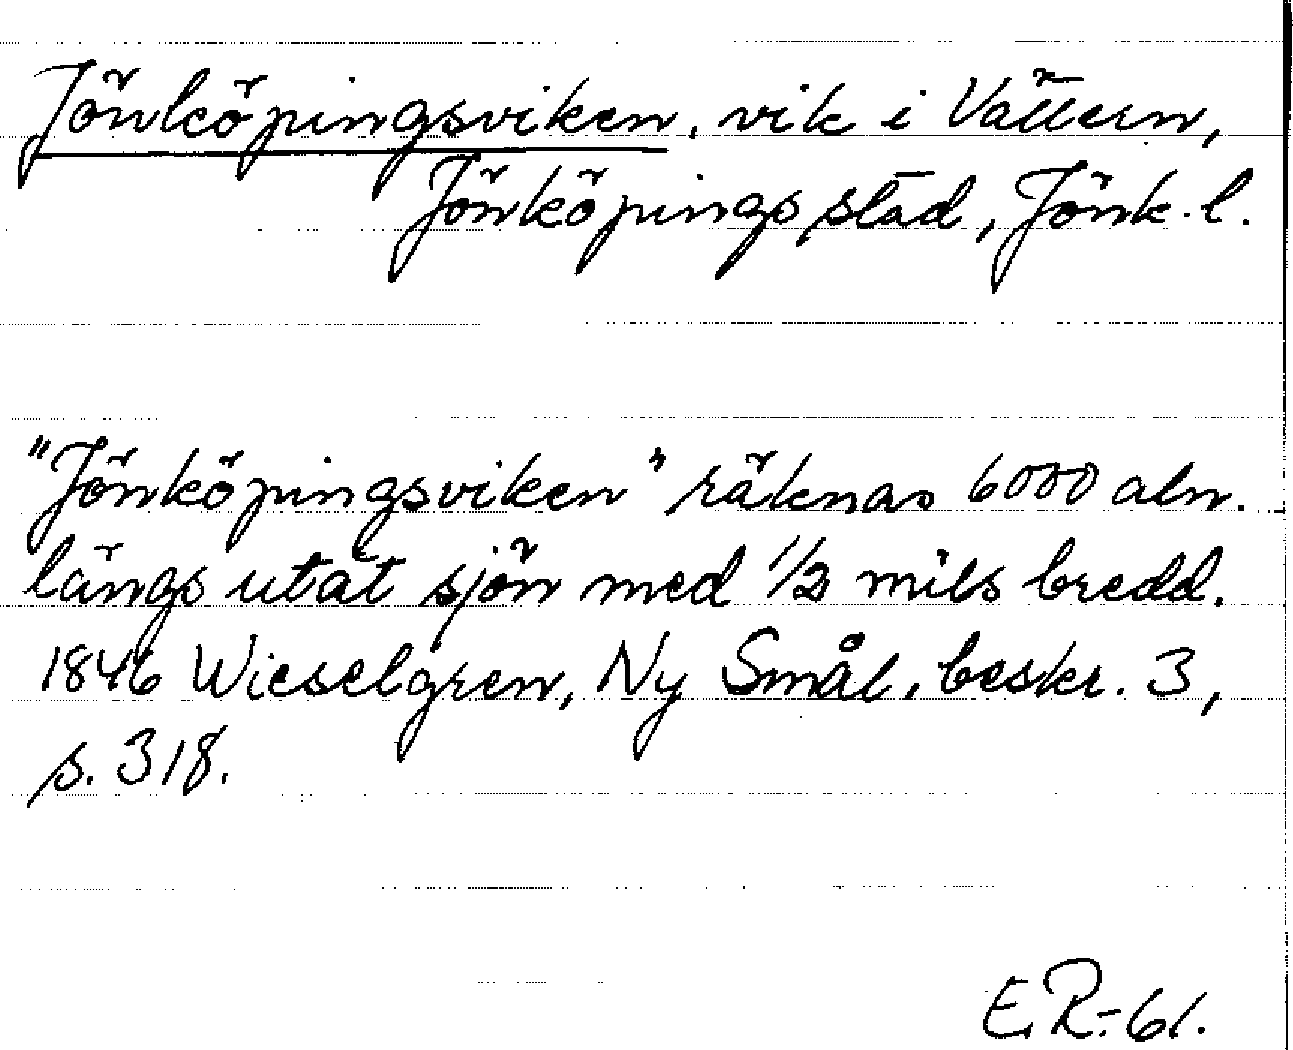 Jönköpingsviken, vik i Vättern,
Jönköpings stad, Jönk. l.
"Jönköpingsviken" räknas 6000 aln.
längs utåt sjön med 1/2 mils bredd.
1846 Wieselgren, Ny Smål. beskr. 3,
s. 318.
E.R.-61.